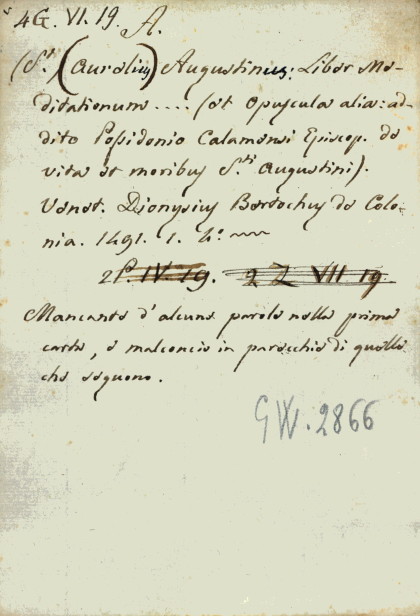 4G. VI. 19. A.
(S.ti) (Aurelius) Augustinus: Liber Me-
ditationum .... (et Opuscula alia: ad-
dito Possidonio Calamensi Episcop. de
vita et moribus S.ti Augustini).
Venet. Dionysius Bertochus de Colo-
nia. 1491. 1. 4.º
2P. IV. 19. 2 Z VII 19
Mancante d'alcune parole nella prima
carta, e malconcio in parecchie di quelle
che seguono.
GW. 2866